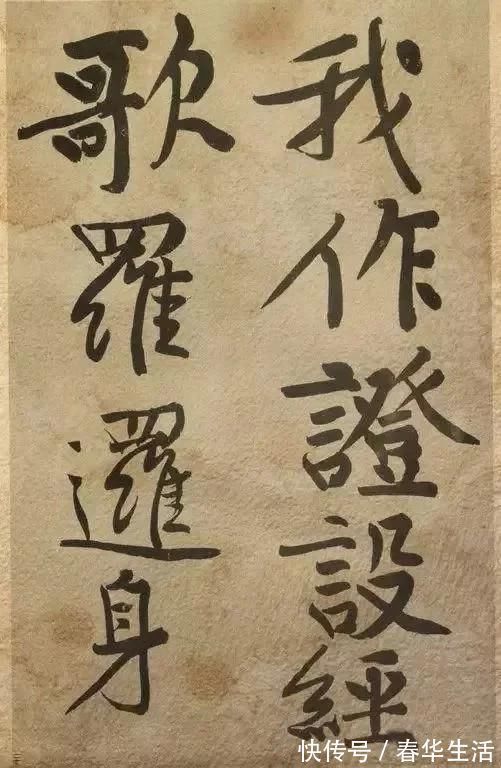 我作證設經
歌羅邏身
快传号/春华生活